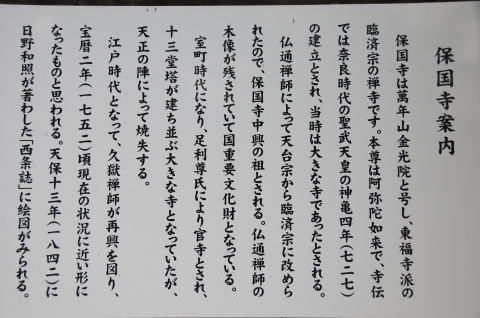 保国寺案内
保国寺は萬年山金光院と号し、東福寺派の
臨済宗の禅寺です。本尊は阿弥陀如来で、寺伝
では奈良時代の聖武天皇の神亀四年(七二七)
の建立とされ、当時は大きな寺であったとされる。
仏通禅師によって天台宗から臨済宗に改めら
れたので、保国寺中興の祖とされる。仏通禅師の
木像が残されていて国重要文化財となっている。
室町時代になり、足利尊氏により官寺とされ、
十三堂塔が建ち並ぶ大きな寺となっていたが、
天正の陣によって焼失する。
江戸時代となって、久嶽禅師が再興を図り、
宝暦二年(一七五二)頃現在の状況に近い形に
なったものと思われる。天保十三年(一八四二)に
日野和照が著わした「西条誌」に絵図がみられる。